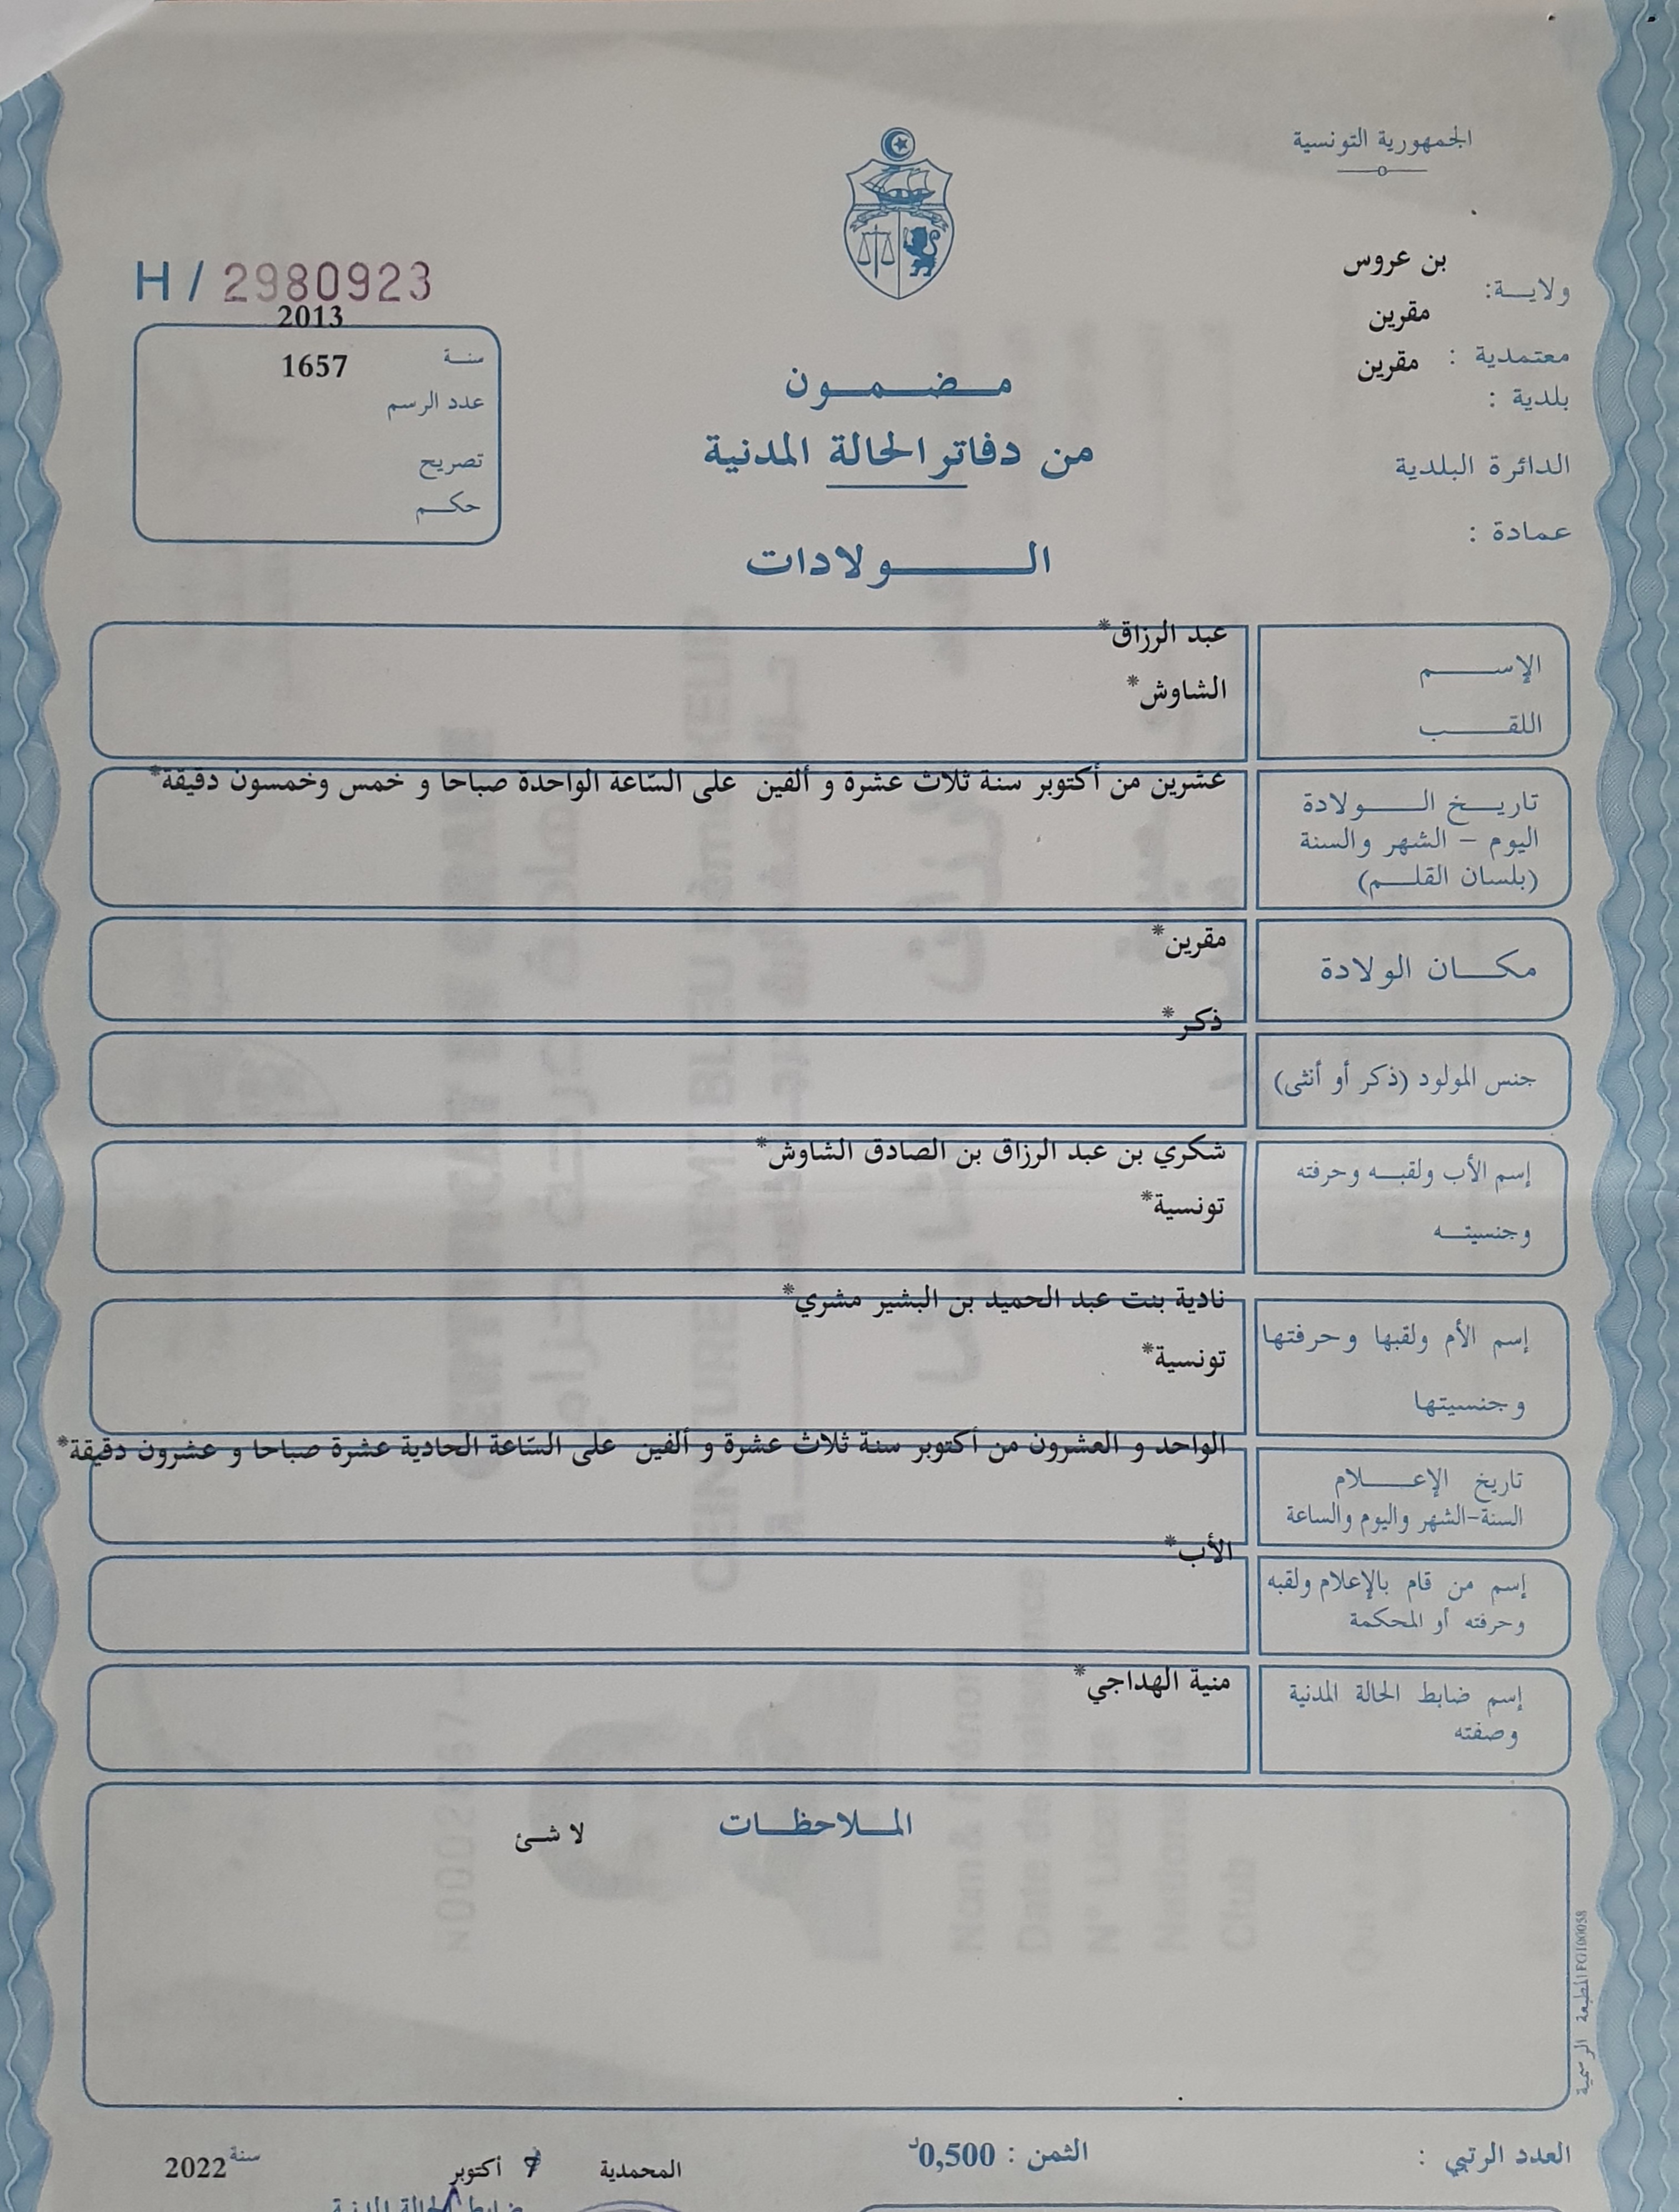 الجمهورية التونسية
ولاية: بن عروس
معتمدية : مقرين
بلدية : مقرين
الدائرة البلدية
عمادة :
H / 2980923
سنة 2013
عدد الرسم 1657
تصريح
حكم
مضمون
من دفاتر الحالة المدنية
الولادات
الإسم عبد الرزاق*
اللقب الشاوش*
تاريخ الولادة
اليوم - الشهر والسنة
(بلسان القلم)
عشرين من أكتوبر سنة ثلاث عشرة و ألفين على السّاعة الواحدة صباحا و خمس وخمسون دقيقة*
مكان الولادة مقرين*
جنس المولود (ذكر أو أنثى) ذكر*
إسم الأب ولقبه وحرفته شكري بن عبد الرزاق بن الصادق الشاوش*
وجنسيته تونسية*
إسم الأم ولقبها وحرفتها نادية بنت عبد الحميد بن البشير مشري*
وجنسيتها تونسية*
تاريخ الإعلام
السنة-الشهر واليوم والساعة
الواحد و العشرون من أكتوبر سنة ثلاث عشرة و ألفين على السّاعة الحادية عشرة صباحا و عشرون دقيقة*
إسم من قام بالإعلام ولقبه
وحرفته أو المحكمة
الأب*
إسم ضابط الحالة المدنية
وصفته
منية الهداجي*
الملاحظات
لا شئ
المطبعة الرسمية FG100058
العدد الرتبي :
الثمن : 0,500د
المحمدية أكتوبر سنة 2022
ضابط الحالة المدنية